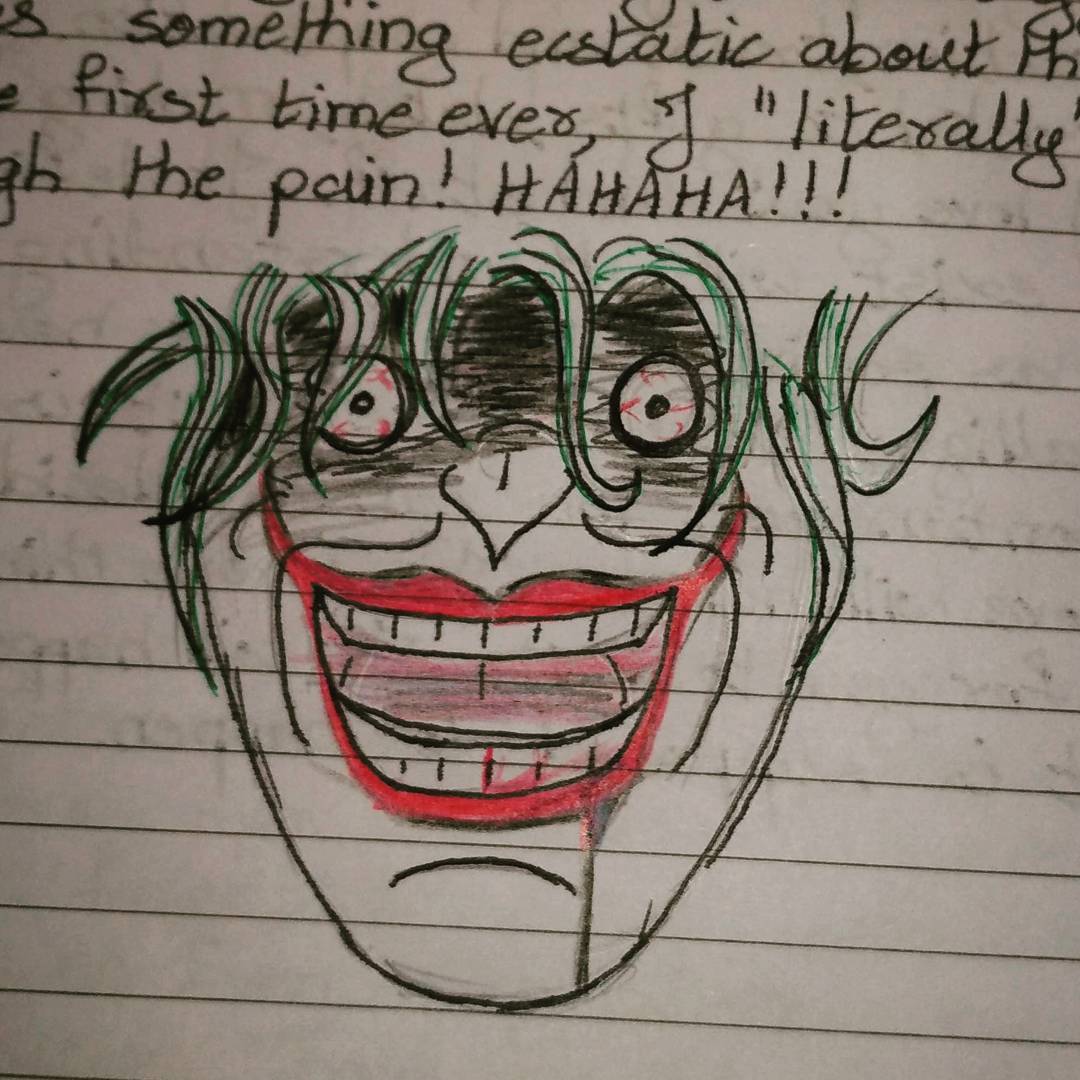 s something ecstatic about Ph
e first time ever, I "literally"
gh the pain! HAHAHA!!!